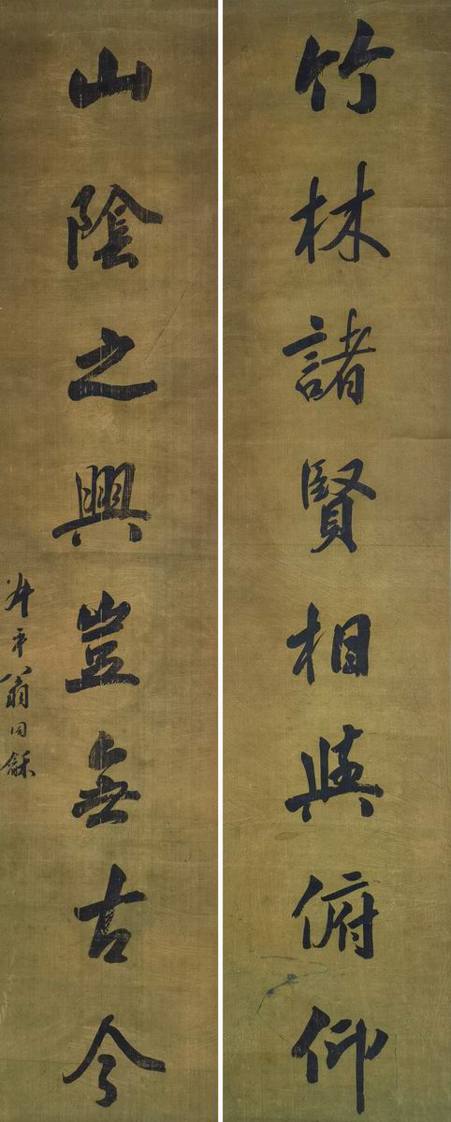 竹林諸賢相與俯仰
山陰之興豈無古今
叔平翁同龢